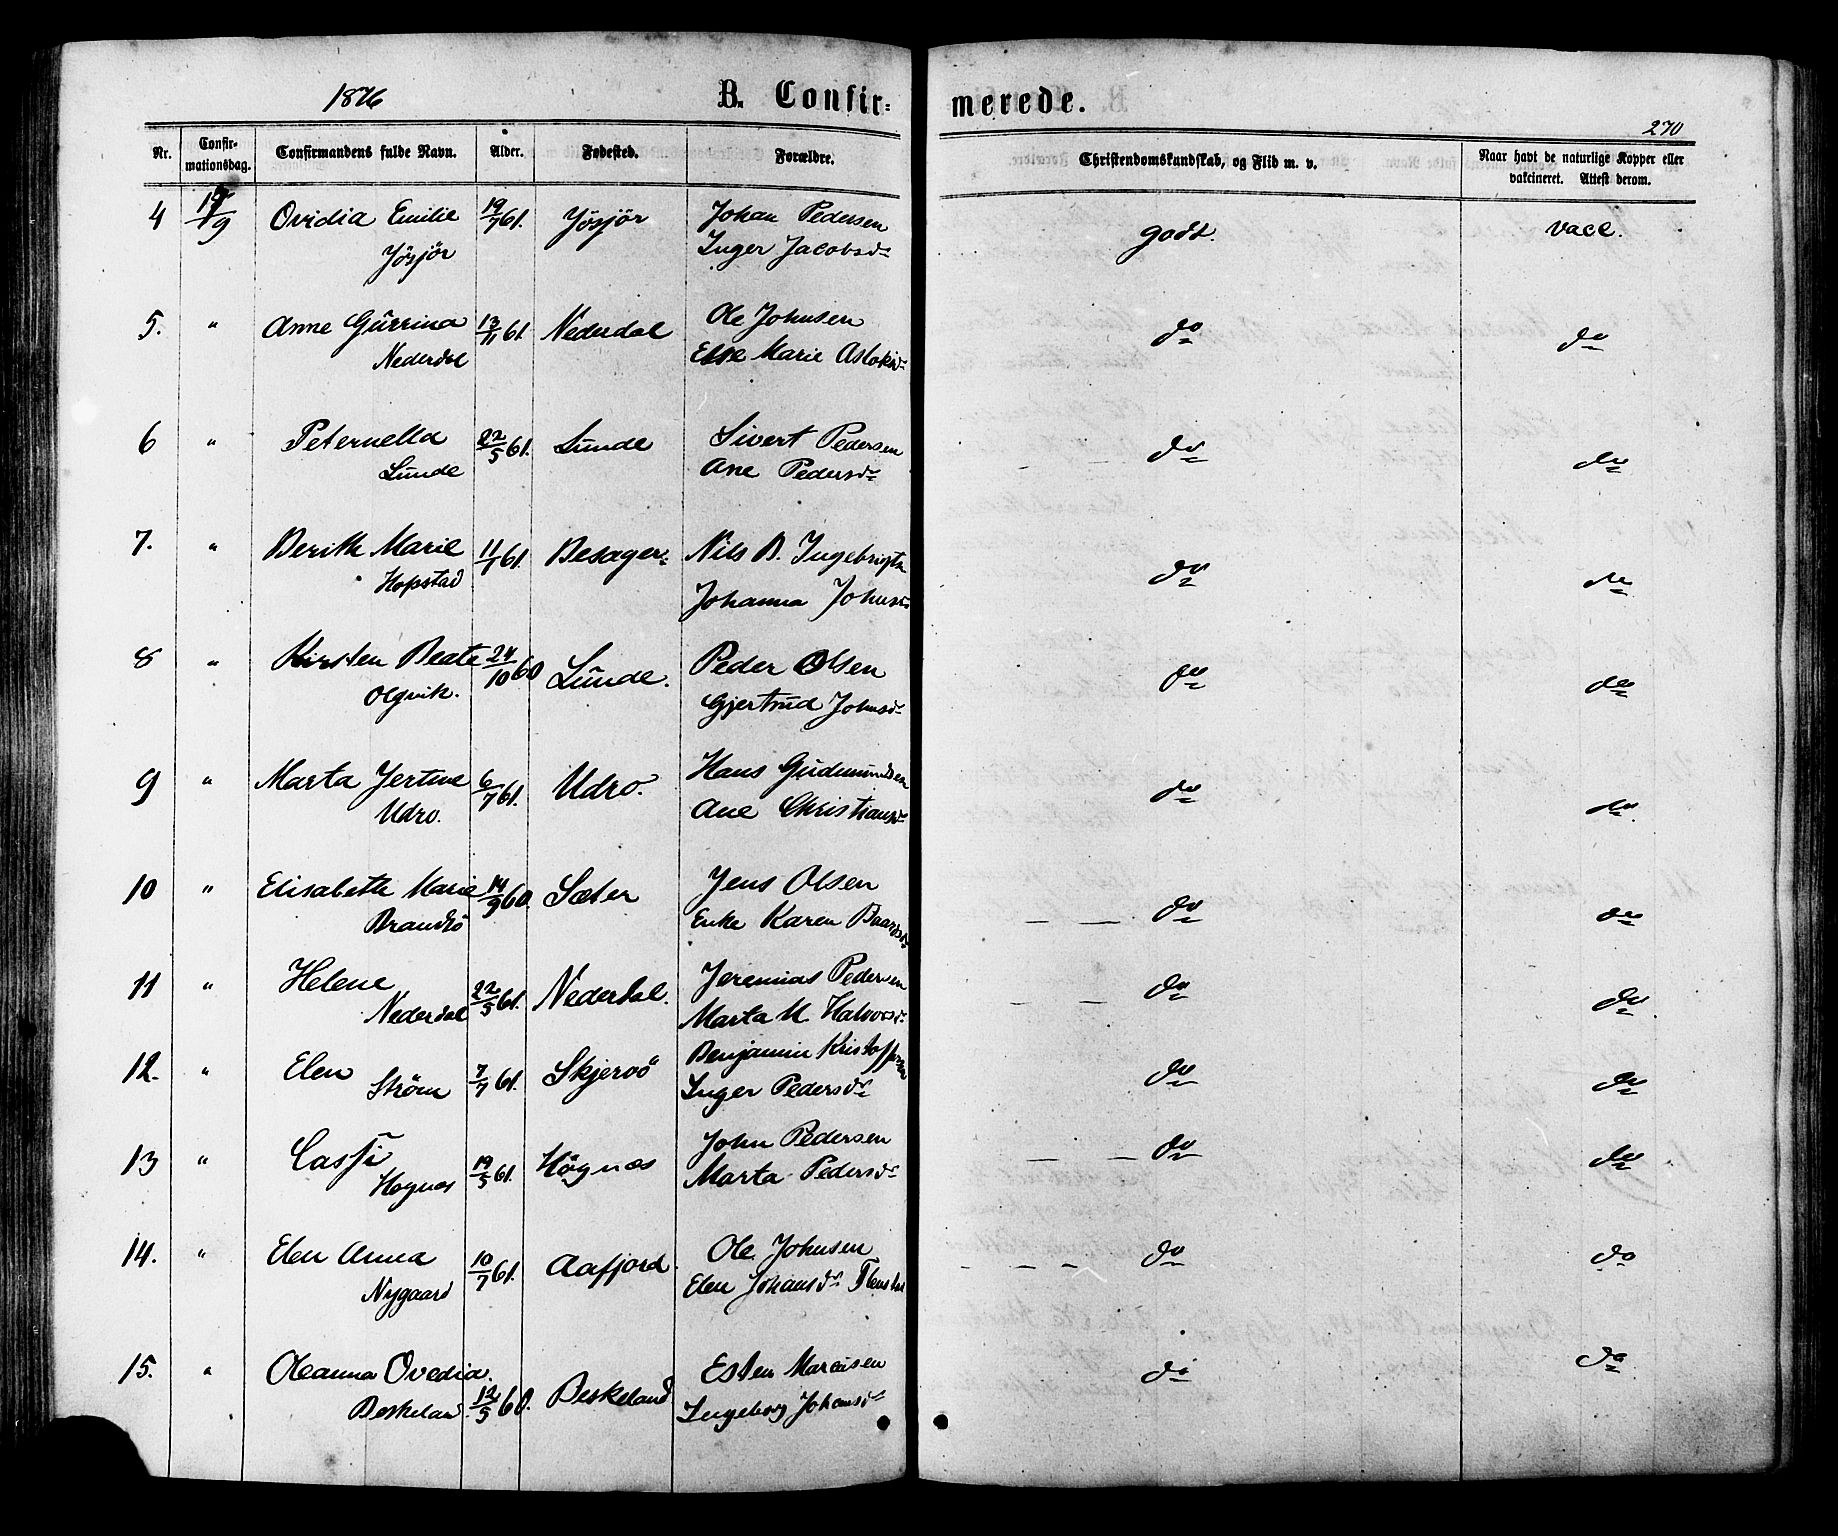 1876
B. Confir-
merede.
270
Nr.
Confir-
mationsdag.
Confirmandens fulde Navn.
Alder.
Fødested.
Forældre.
Christendomskundskab, og Flid m. v.
Naar havt de naturlige Kopper eller
vakcineret. Attest derom.
4 Ovidia Emilie 19/7 61. Jøsjør Johan Pedersen godt. vacc.
Jøsjør Inger Jacobsdr
5. " Anne Gurrina 13/11 61. Nederdal Ole Johnsen do do
Nederdal Else Marie Aslaksdr
6 " Peternella 22/5 61. Lunde Sivert Pedersen do do
Lunde Ane Pedersdr
7. " Berith Marie 11/1 61. Besager Nils B. Ingebrigts do do
Hopstad Johanna Johnsd
8 " Kirsten Beate 24/10 60 Lunde. Peder Olsen do do
Olgvik. Gjertrud Johnsdr
9 " Marta Jertine 6/7 61. Udro. Hans Gudmundsen do do
Udro. Ane Christiansdr
10 " Elisabeth Marie 14/9 60. Sæter Jens Olsen do do
Brandsö Enke Karen Baardsdr
11 " Helene 22/5 61. Nederdal. Jeremias Pedersen do do
Nederdal Marta M. Halvorsdr
12. " Elen 7/7 61. Skjervö Benjamin Kristoffersen do do
Strøm Inger Pedersdr
13 " Cassi 19/5 61. Høgnæs John Pedersen do do
Hognæs Marta Pedersdr
14. " Elen Anna 10/7 61. Aafjord. Ole Johnsen do do
Nygaard Elen Johansdr
15. " Oleanna Ovedia. 12/5 60. Beskeland Esten Marcusen do do
Beskeland. Ingeborg Johansdr